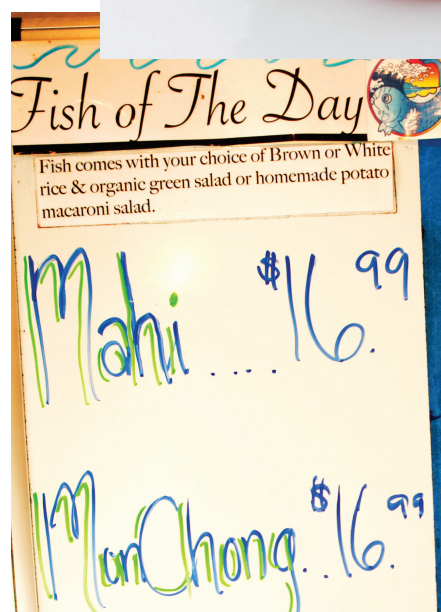 Fish of The Day
Fish comes with your choice of Brown or White
rice & organic green salad or homemade potato
macaroni salad.
Mahi .... $16.99
MonChong.. $16.99